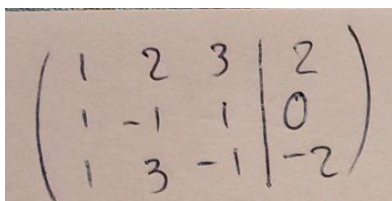 1 2 3 | 2
1 -1 1 | 0
1 3 -1 | -2